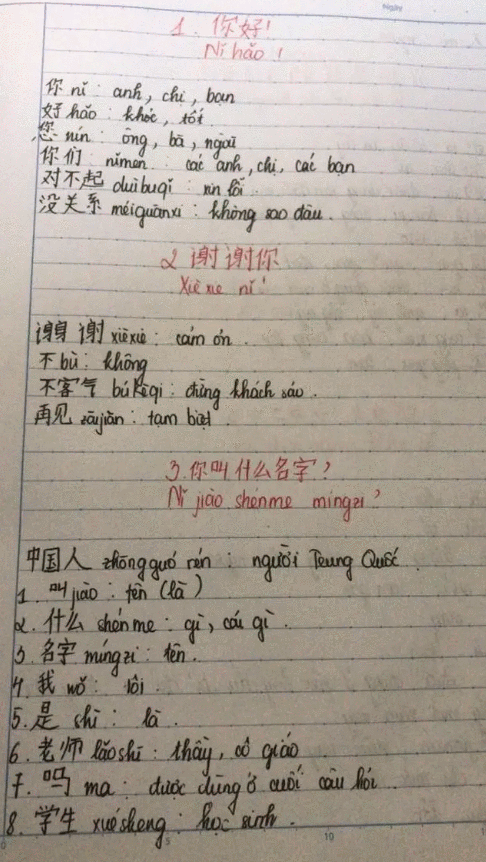 Ngày
1. 你好!
Nǐ hǎo!
你 nǐ: anh, chị, bạn
好 hǎo: khỏe, tốt.
您 nín: ông, bà, ngài
你们 nǐmen: các anh, chị, các bạn
对不起 duìbuqǐ: xin lỗi
没关系 méiguānxi: không sao đâu.
2 谢谢你
Xiè xie nǐ!
谢谢 xièxie: cám ơn.
不 bù: không
不客气 búkèqi: đừng khách sáo.
再见 zàijiàn: tạm biệt.
3. 你叫什么名字?
Nǐ jiào shénme míngzi?
中国人 zhōngguó rén: người Trung Quốc.
1. 叫 jiào: tên (là)
2. 什么 shénme: gì, cái gì.
3. 名字 míngzi: tên.
4. 我 wǒ: tôi.
5. 是 shì: là.
6. 老师 lǎoshī: thầy, cô giáo
7. 吗 ma: được dùng ở cuối câu hỏi.
8. 学生 xuésheng: học sinh.
5 10